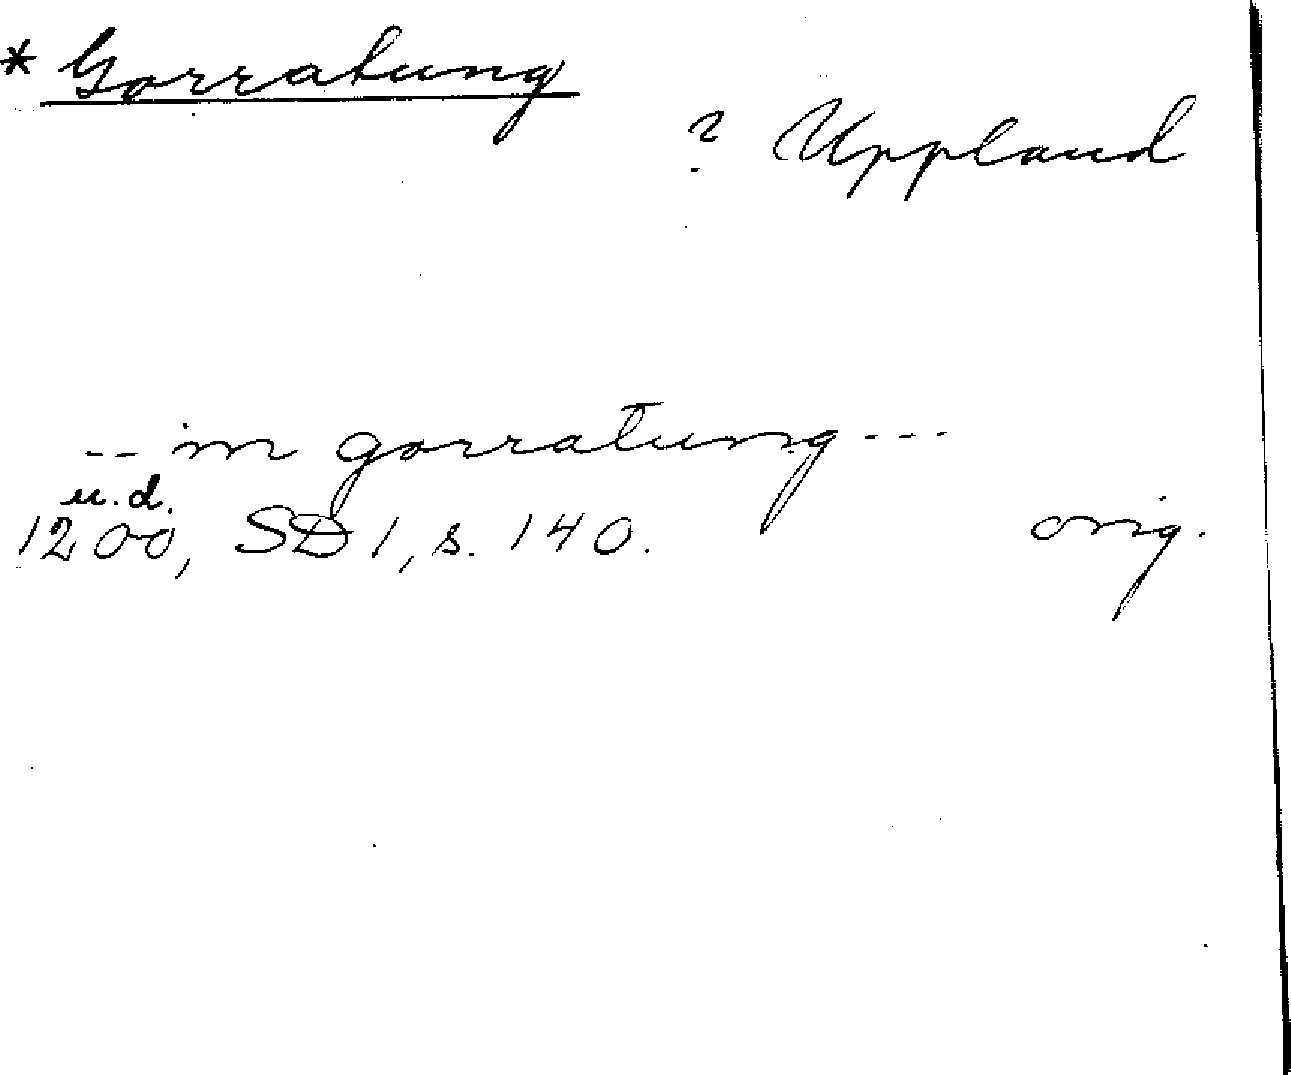 * Gorratung
? Uppland
-- in gorratung ---
u.d.
1200, SD 1, s. 140. orig.